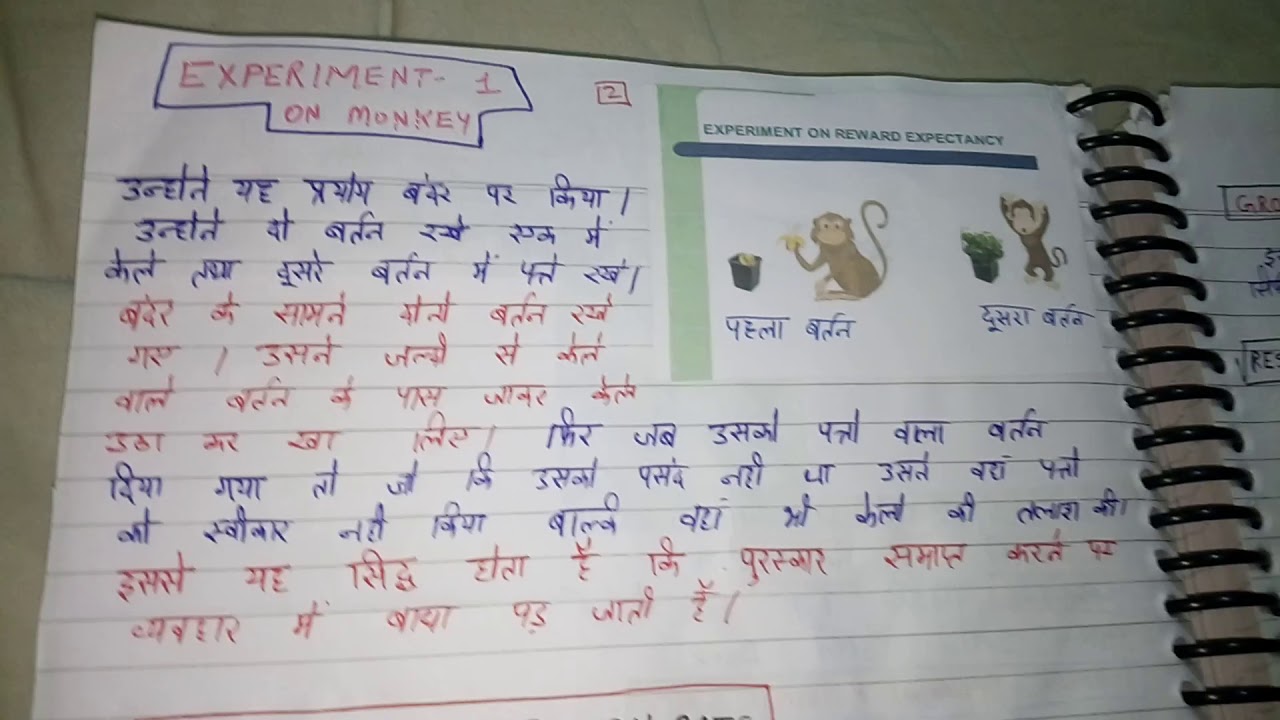 EXPERIMENT- 1
ON MONKEY
2
EXPERIMENT ON REWARD EXPECTANCY
पहला बर्तन
दूसरा बर्तन
उन्होने यह प्रयोग बंदर पर किया।
उन्होने दो बर्तन रखे एक में
केले तथा दूसरे बर्तन में पत्ते रखे।
बंदर के सामने दोनो बर्तन रखे
गए। उसने जल्दी से केले
वाले बर्तन के पास जाकर केले
उठा कर खा लिए। फिर जब उसको पत्तो वाला बर्तन
दिया गया तो जो कि उसको पसंद नही था उसने वहां पत्तो
को स्वीकार नही किया बल्कि वहां भी केलो की तलाश की।
इससे यह सिद्ध होता है कि पुरस्कार समाप्त करने पर
व्यवहार में बाधा पड़ जाती है।
GRO
RES